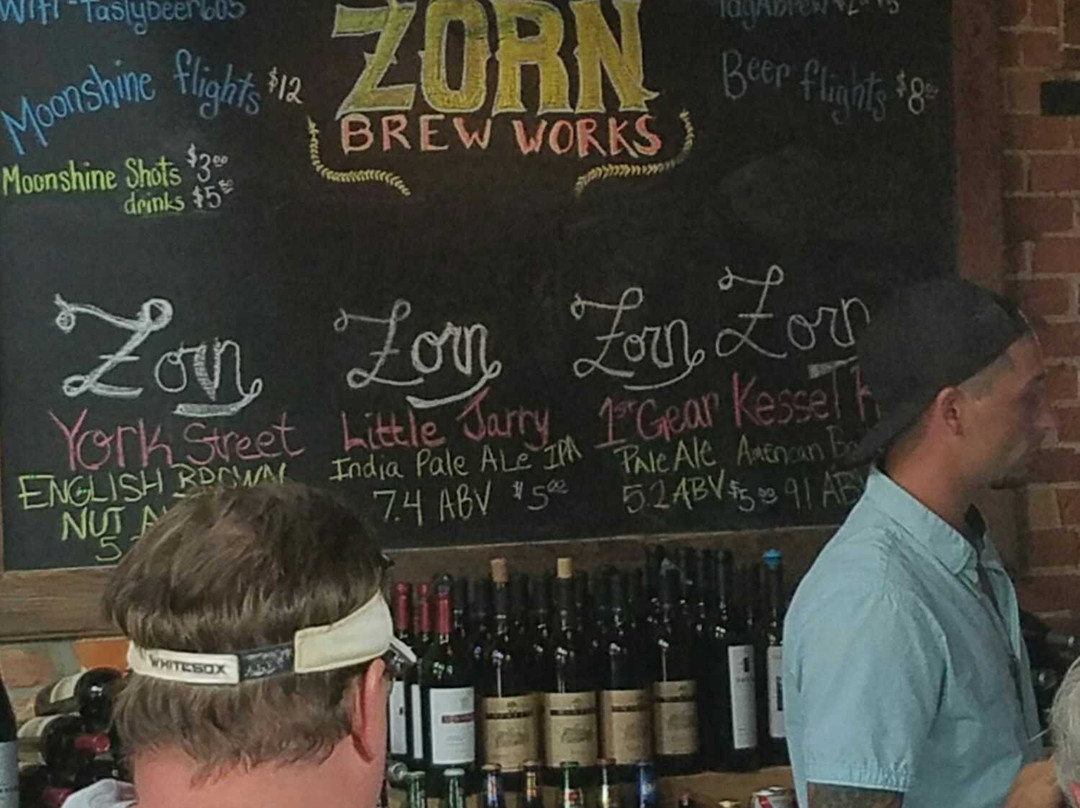 WiFi - Tastybeer605
ZORN
BREW WORKS
Moonshine flights $12
Beer flights $8
Moonshine Shots $3.00
drinks $5
Zorn
York Street
ENGLISH BROWN
NUT
5
Zorn
Little Jarry
India Pale Ale IPA
7.4 ABV $5.00
Zorn
1st Gear
Pale Ale
5.2 ABV $5.00
Zorn
Kessel
American
9.1 AB
WHITESOX